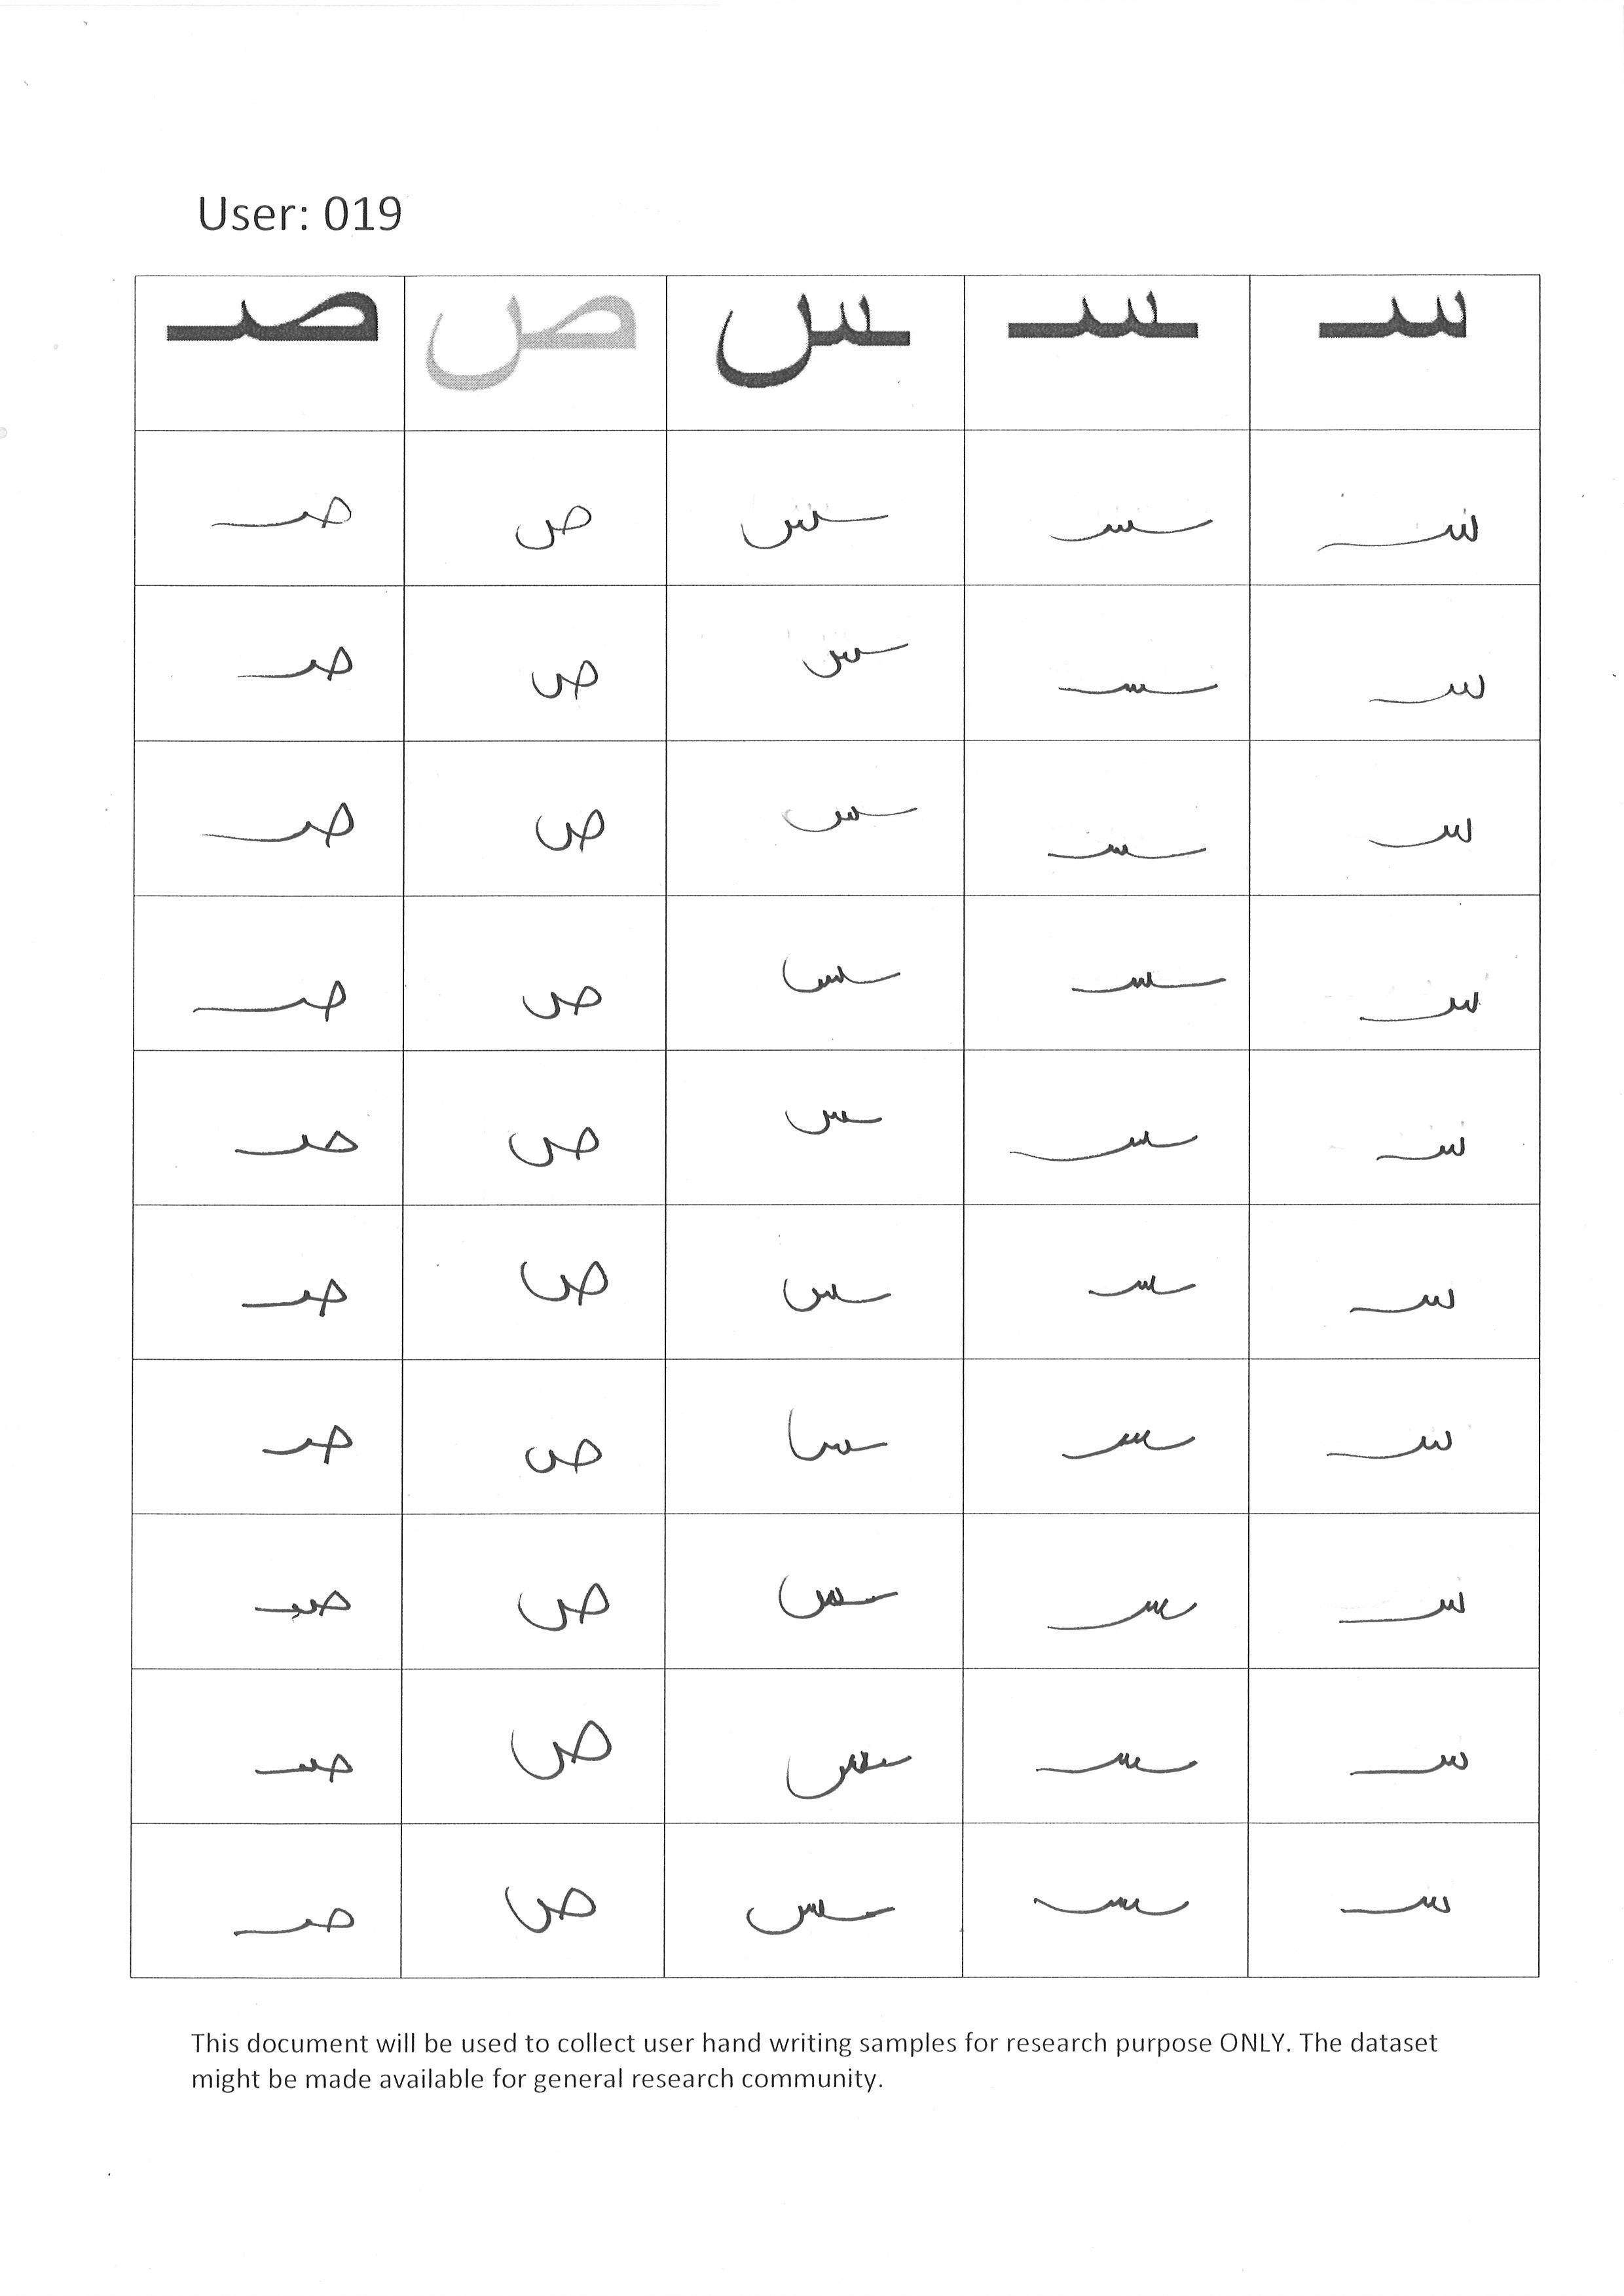 User: 019
سـ ـسـ ـس ص صـ
سـ ـسـ ـس ص صـ
سـ ـسـ ـس ص صـ
سـ ـسـ ـس ص صـ
سـ ـسـ ـس ص صـ
سـ ـسـ ـس ص صـ
سـ ـسـ ـس ص صـ
سـ ـسـ ـس ص صـ
سـ ـسـ ـس ص صـ
سـ ـسـ ـس ص صـ
سـ ـسـ ـس ص صـ
This document will be used to collect user hand writing samples for research purpose ONLY. The dataset
might be made available for general research community.